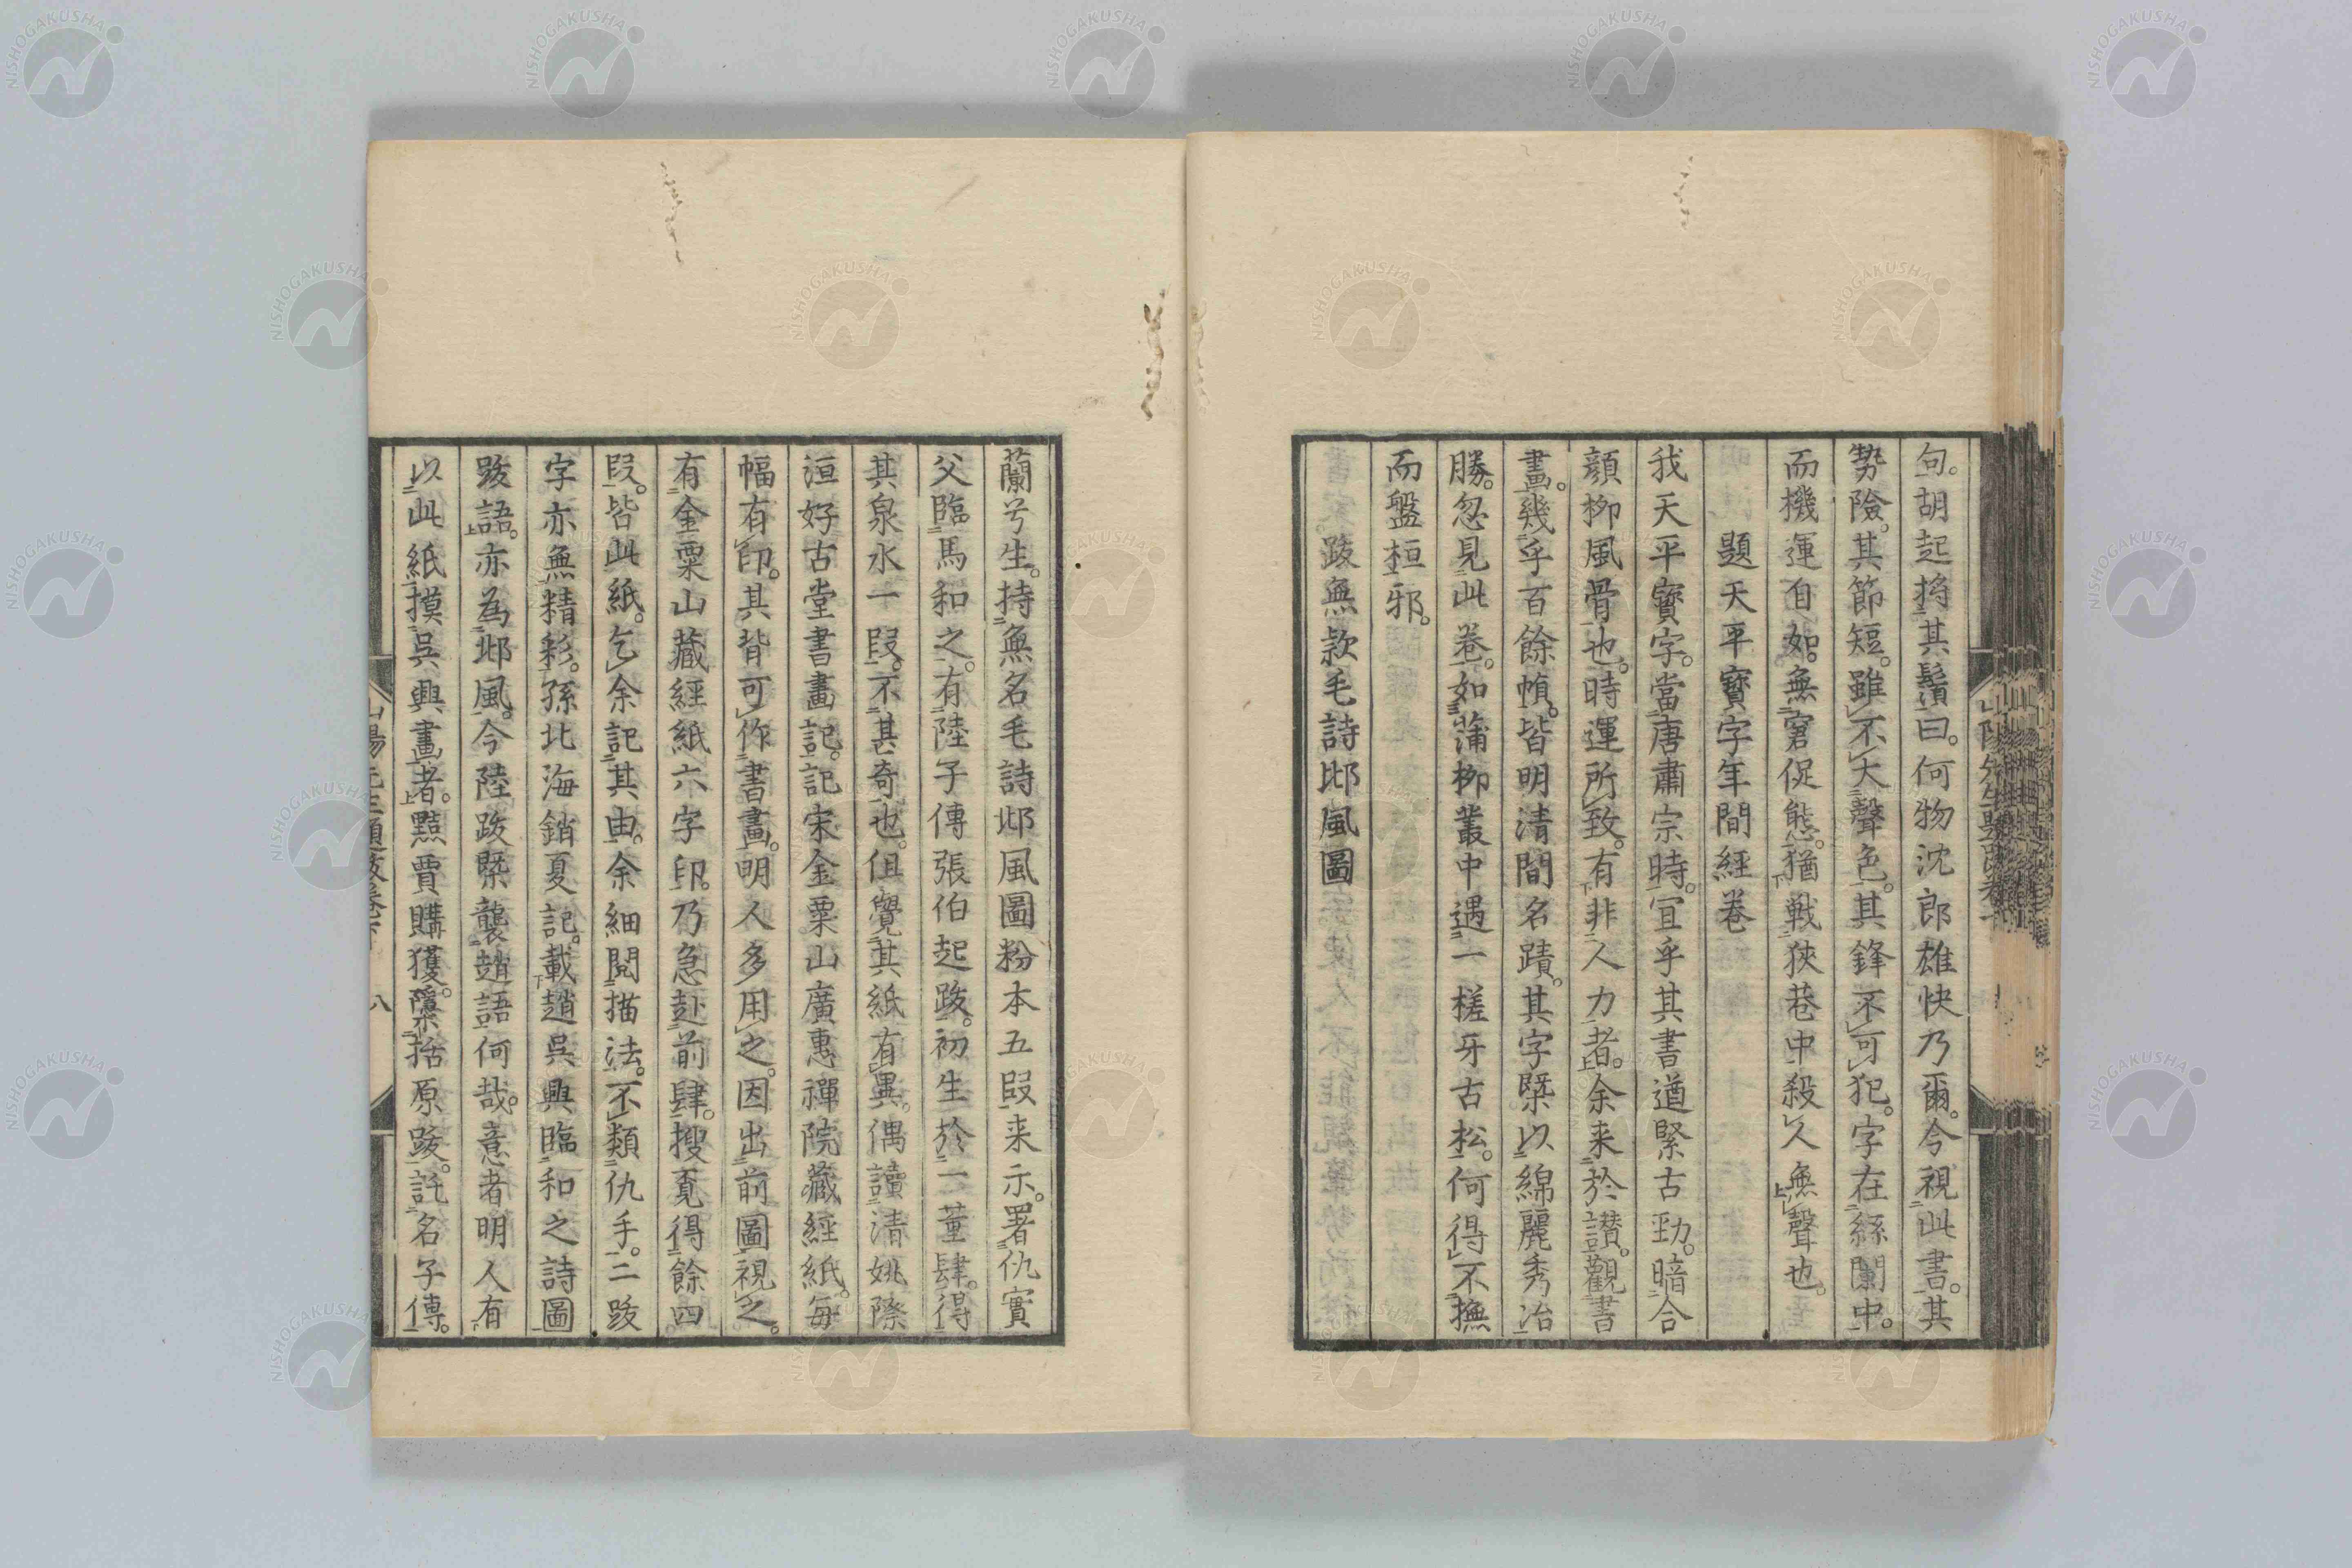 句。胡起捋其鬚曰。何物沈郎雄快乃爾。今視此書。其
勢險。其節短。雖不大聲色。其鋒不可犯。字在絲闌中。
而機運自如。無窘促態。猶戦狹巷中殺人無聲也。
題天平寶字年間經卷
我天平寶字。當唐肅宗時。冝乎其書遒緊古勁。暗合
顔栁風骨也。時運所致。有非人力者。余来於讃。觀書
畫。幾乎百餘幀。皆明清間名蹟。其字槩以綿麗秀冶
勝。忽見此卷。如蒲栁叢中遇一槎牙古松。何得不撫
而盤桓邪。
跋無款毛詩邶風圖
蘭兮生。持無名毛詩邶風圖粉本五段来示。署仇實
父臨馬和之。有陸子傳張伯起跋。初生於一董肆。得
其泉水一段。不甚奇也。但覺其紙有異。偶讀清姚際
洹好古堂書畫記。記宋金粟山廣惠禪院藏經紙。每
幅有印。其背可作書畫。明人多用之。因出前圖視之。
有金粟山藏經紙六字印。乃急赴前肆。搜覔得餘四
段。皆此紙。乞余記其由。余細閲描法。不類仇手。二跋
字亦無精彩。孫北海銷夏記。載趙吳興臨和之詩圖
跋語。亦為邶風。今陸跋槩襲趙語何哉。意者明人有
以此紙摸吳興畫者。黠賈購獲。隱括原跋。託名子傳。
八
NISHOGAKUSHA